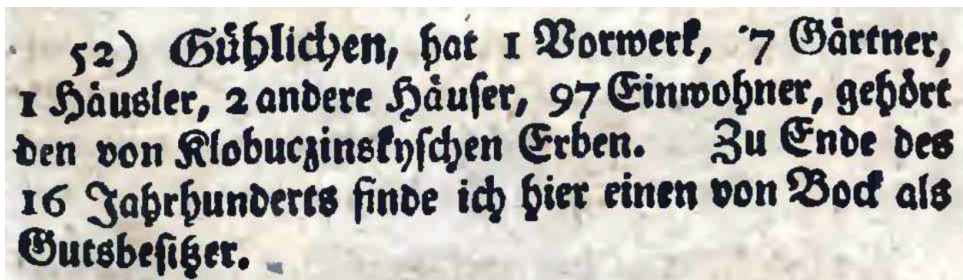 52) Gühlichen, hat 1 Vorwerk, 7 Gärtner,
1 Häusler, 2 andere Häuser, 97 Einwohner, gehört
den von Klobuczinskyschen Erben. Zu Ende des
16 Jahrhunderts finde ich hier einen von Bock als
Gutsbesitzer.